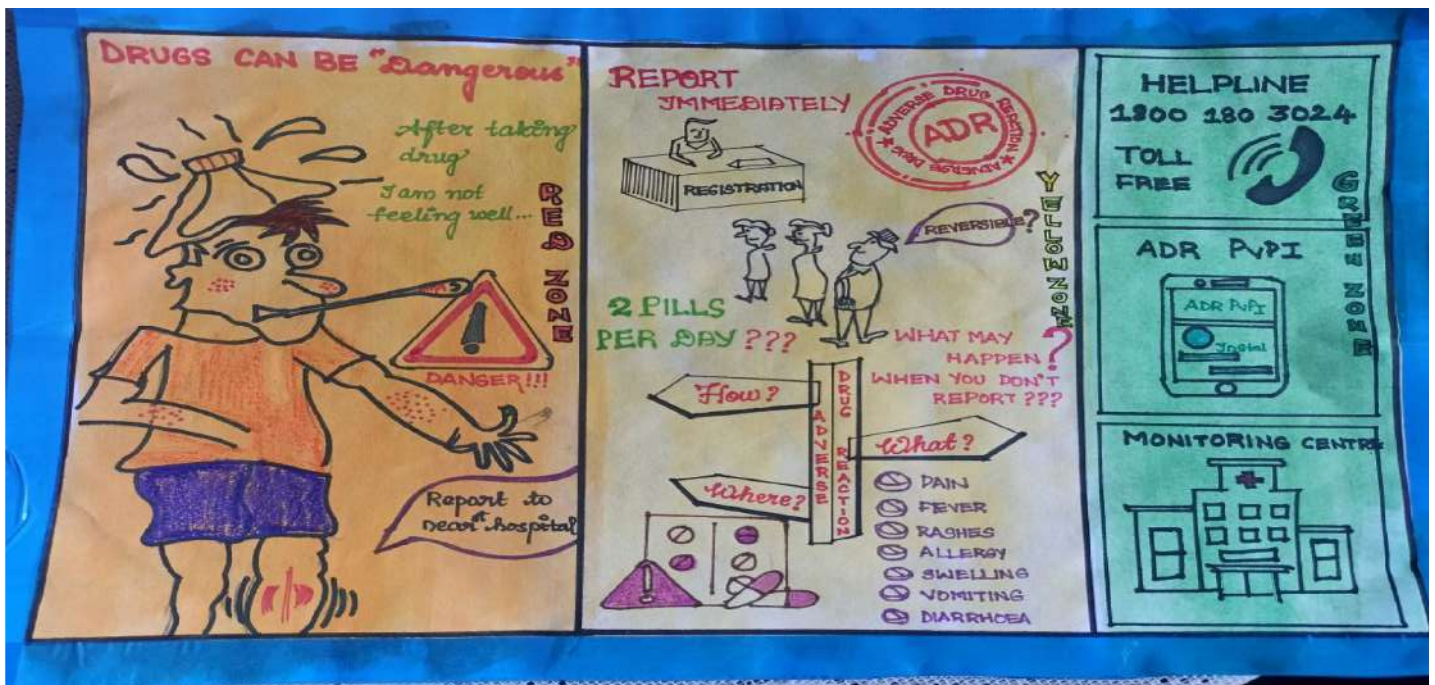 DRUGS CAN BE "Dangerous"
After taking
drug
I am not
feeling well...
RED ZONE
DANGER!!!
Report to
nearest hospital
REPORT
IMMEDIATELY
ADVERSE DRUG REACTION * ADVERSE DRUG *
ADR
REGISTRATION
YELLOW ZONE
REVERSIBLE?
2 PILLS
PER DAY ???
WHAT MAY
HAPPEN?
WHEN YOU DON'T
REPORT ???
How?
ADVERSE
DRUG REACTION
What?
Where?
PAIN
FEVER
RASHES
ALLERGY
SWELLING
VOMITING
DIARRHOEA
HELPLINE
1800 180 3024
TOLL
FREE
GREEN ZONE
ADR PvPI
ADR PvPI
MONITORING CENTRE